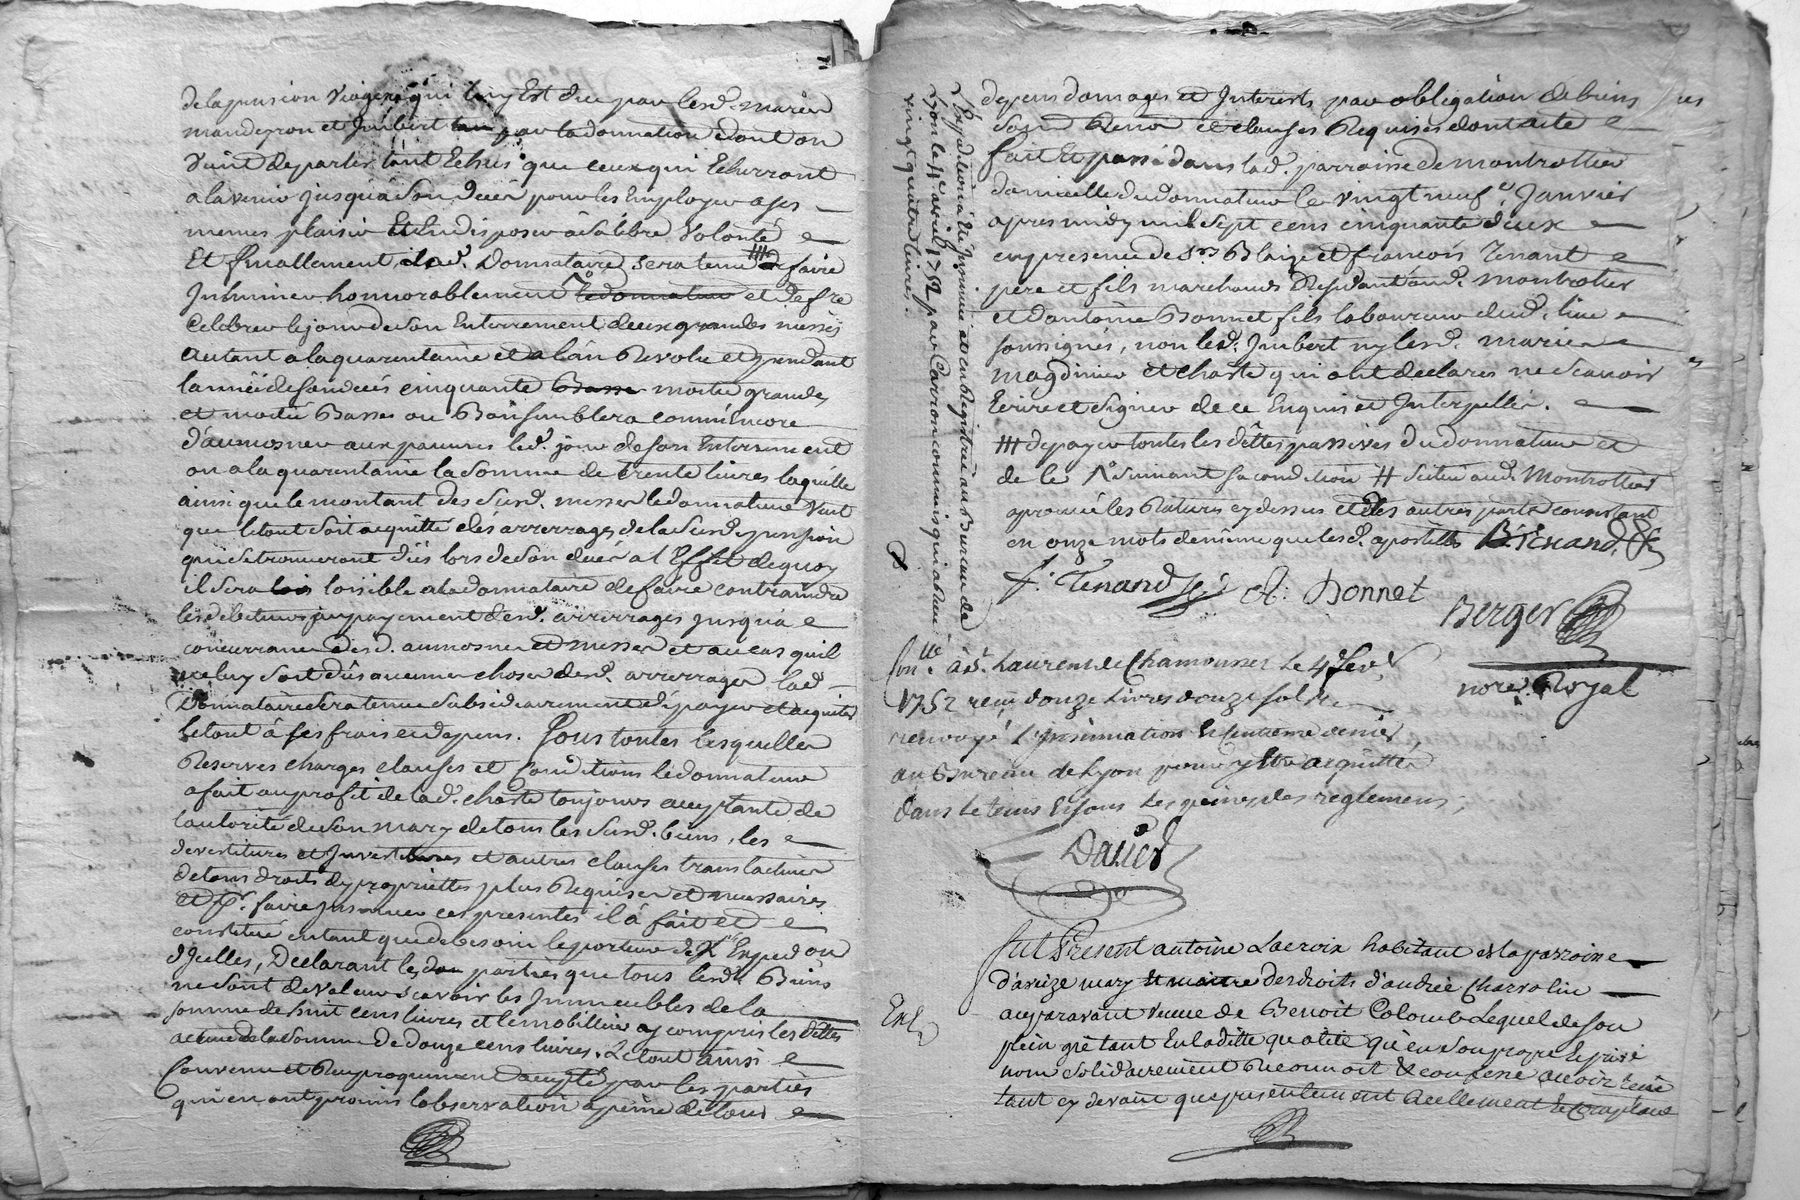 de la pension viagere qui luy Est due par lesd. mariés
mandeyron et Imbert par la donnation dont on
vient de parler tant Echus que ceux qui Echerront
a lavenir jusqu'à Son decés pour les Employer a ses
memes plaisir Et En disposer à Sa libre volonté
Et finallement, lad. Donnataire sera tenue de faire
Inhumer honnorablement le donnateur et de fre
Celebrer le jour de Son Enterrement deux grandes messes
autant a la quarantaine et a l'an Revolu et pendant
lannéé de Son decés cinquante Basse moitié grandes
et moitié Basses ou Bon semblera comme encore
d'aumosner aux pauvres led. jour de son Enterrement
ou a la quarantaine la somme de trente livres laquelle
ainsi que le montant des susd. messes le donnateur veut
que le tout soit acquitté des arrerages de la susd. pension
qui se trouveront dus lors de Son decés a l'Effet de quoy
il sera loisible a la donnataire de faire contraindre
les debiteurs au payement desd. arrerages jusqu'a
concurrance desd. aumosnes et messes et au cas quil
ne luy soit dûs aucune chose desd. arrerages lad.
Donnataire Sera tenue Subsidiairement de payer et acquitter
le tout à ses frais et depens. Sous toutes lesquelles
Reserves charges clauses et Conditions le donnateur
a fait au profit de lad. charte toujours acceptante de
lautorité de son mary de tous les Susd. biens, les
devestitures et Investitures et autres clauses translatives
de tous droits de proprietté plus Requises et necessaires
et pr. faire Insinuer ces presentes il à fait et
constitué en tant que de besoin le porteur de l'Exped.on
d'Icelles, Declarant les parties que tous lesd. Biens
ne sont de valeur scavoir les Immeubles de la
somme de huit cens livres et le mobillier y compris les dettes
active de la somme De douze cens livres. Le tout ainsi
Convenu et Reciproquement accepté par les parties
qui en ont promis lobservation a peine de tous
depens domages et Interests par obligation de biens
Soum. Renon. et clauses Requises dont acte
fait et passé dans lad. parroisse de montrottier
domicille du donnateur le vingt neuf Janvier
apres midy mil sept cens cinquante deux
en presence de Srs Blaize et francois Tenant
pere et fils marchands Residant aud. Montrottier
et d'antoine Bonnet fils laboureur dud. lieu
soussignés, non led. Imbert ny lesd. mariés
magdinier et charte qui ont declarés ne Scavoir
Ecrire et signer de ce Enquis et Interpellés.
de payer toutes les dettes passives du donnateur et
de le suivant sa condition Scitué aud. Montrottier
aprouvé les Ratures cy dessus et des autres parts consistant
en onze mots de même que lesd. apostilles B. Tenand
f. Tenand A. Bonnet
Berger
nore. Royal
L'Expédition a été Insinuée et enregistrée au Bureau de
Lyon le 4 avril 1752 par Carron commis qui a Reçu
vingt quatre livres.
Con.lle à St. Laurent de Chamousset Le 4e fevr.
1752 reçu douze livres douze sols
renvoyé L'insinuation et centieme denier,
au Bureau de Lyon pour y Etre acquitté
dans Le tems Et sous Les peines des reglemens,
Dalier
fut Present antoine Lacroix habitant de la parroisse
d'aveize mary et maitre des droits d'andrée Charvolin
auparavant veuve de Benoit Colomb Lequel de son
plein gré tant En laditte qualité qu'en Son propre et privé
nom Solidairement Reconnoit et confesse avoir
tant cy devant que presentement Reellement et